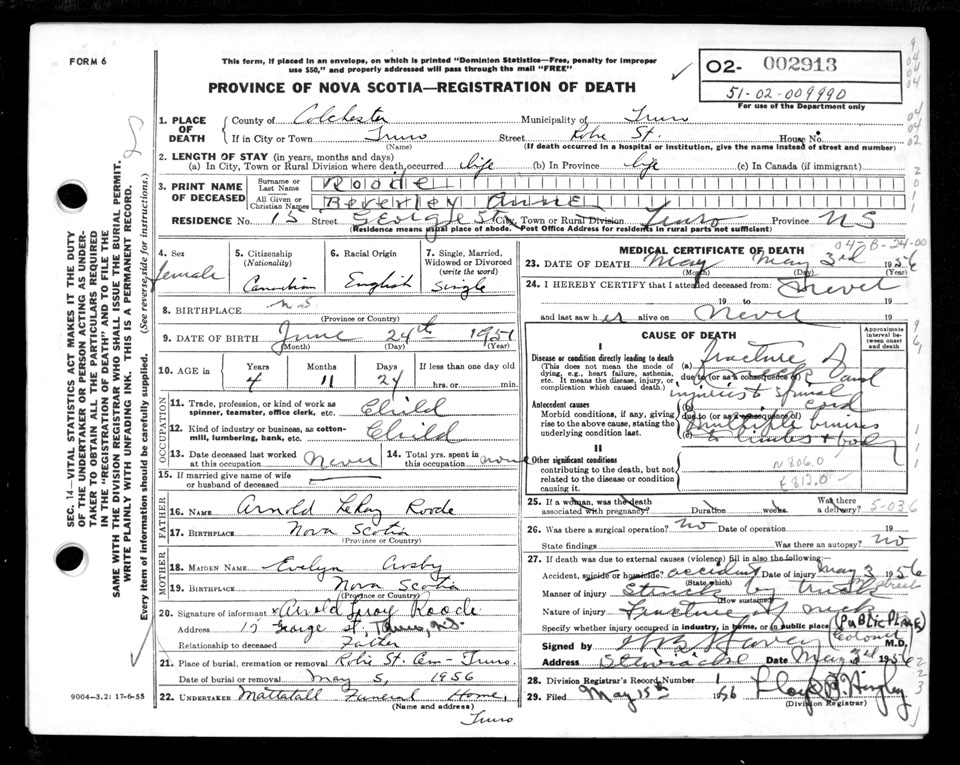 FORM 6
This form, if placed in an envelope, on which is printed "Dominion Statistics—Free, penalty for improper
use $50," and properly addressed will pass through the mail "FREE"
PROVINCE OF NOVA SCOTIA—REGISTRATION OF DEATH
02- 002913
51-02-009990
For use of the Department only
1. PLACE OF DEATH
County of Colchester Municipality of Truro
If in City or Town Truro Street Robie St. House No.
(Name) (If death occurred in a hospital or institution, give the name instead of street and number)
2. LENGTH OF STAY (in years, months and days)
(a) In City, Town or Rural Division where death occurred life (b) In Province life (c) In Canada (if immigrant)
3. PRINT NAME OF DECEASED
Surname or Last Name Roode
All Given or Christian Names Beverley Anne
RESIDENCE No. 15 Street George St City, Town or Rural Division Truro Province NS
(Residence means usual place of abode. Post Office Address for residents in rural parts not sufficient)
4. Sex female
5. Citizenship (Nationality) Canadian
6. Racial Origin English
7. Single, Married, Widowed or Divorced (write the word) Single
8. BIRTHPLACE N.S.
(Province or Country)
9. DATE OF BIRTH June 24th 1951
(Month) (Day) (Year)
10. AGE in Years Months Days If less than one day old
4 11 24 hrs. or min.
OCCUPATION
11. Trade, profession, or kind of work as spinner, teamster, office clerk, etc. Child
12. Kind of industry or business, as cotton-mill, lumbering, bank, etc. Child
13. Date deceased last worked at this occupation Never
14. Total yrs. spent in this occupation none
15. If married give name of wife or husband of deceased
FATHER
16. NAME Arnold LeRoy Roode
17. BIRTHPLACE Nova Scotia
(Province or Country)
MOTHER
18. MAIDEN NAME Evelyn
19. BIRTHPLACE Nova Scotia
(Province or Country)
20. Signature of informant x Arnold Leroy Roode
Address 15 George St, Truro, N.S.
Relationship to deceased Father
21. Place of burial, cremation or removal Robie St. Cem- Truro.
Date of burial or removal May 5, 1956
22. UNDERTAKER Mattatall Funeral Home,
(Name and address)
Truro
9004-3.2: 17-6-55
SEC. 14—VITAL STATISTICS ACT MAKES IT THE DUTY
OF THE UNDERTAKER OR PERSON ACTING AS UNDER-
TAKER TO OBTAIN ALL THE PARTICULARS REQUIRED
IN THE "REGISTRATION OF DEATH" AND TO FILE THE
SAME WITH THE DIVISION REGISTRAR WHO SHALL ISSUE THE BURIAL PERMIT.
WRITE PLAINLY WITH UNFADING INK. THIS IS A PERMANENT RECORD.
Every item of information should be carefully supplied. (See reverse side for instructions.)
MEDICAL CERTIFICATE OF DEATH
04-B-24-00
23. DATE OF DEATH May May 3rd 1956
(Month) (Day) (Year)
24. I HEREBY CERTIFY that I attended deceased from: Never
19 to 19
and last saw her alive on Never 19
CAUSE OF DEATH
Approximate interval between onset and death
I
Disease or condition directly leading to death
(This does not mean the mode of dying, e.g., heart failure, asthenia, etc. It means the disease, injury, or complication which caused death.)
(a) fracture of
due to (or as a consequence of) and
injuries to spinal
Antecedent causes
Morbid conditions, if any, giving rise to the above cause, stating the underlying condition last.
(b) cord
due to (or as a consequence of)
multiple bruises
(c) to limbs + body
II
Other significant conditions
contributing to the death, but not related to the disease or condition causing it.
N 806.0
E 812.0
25. If a woman, was the death associated with pregnancy? Duration weeks Was there a delivery?
5-036
26. Was there a surgical operation? no Date of operation
State findings Was there an autopsy? No
27. If death was due to external causes (violence) fill in also the following:—
Accident, suicide or homicide? accident Date of injury May 3 1956
(State which)
Manner of injury Struck by truck
(How sustained)
Nature of injury fracture of neck
Specify whether injury occurred in industry, in home, or in public place (PUBLIC PLACE)
Signed by M.D.
Coroner
Address Stewiacke Date May 3rd 1956
28. Division Registrar's Record Number 1
29. Filed May 15th 1956
(Division Registrar)